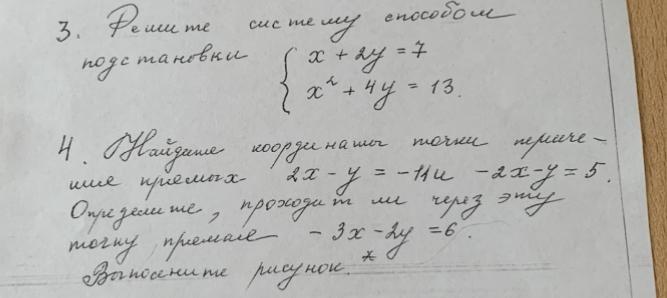 3. Решите систему способом
подстановки { x + 2y = 7
x² + 4y = 13.
4. Найдите координаты точки пересече-
ния прямых 2x - y = -11 и -2x - y = 5.
Определите, проходит ли через эту
точку прямая - 3x - 2y = 6.
Выполните рисунок.*